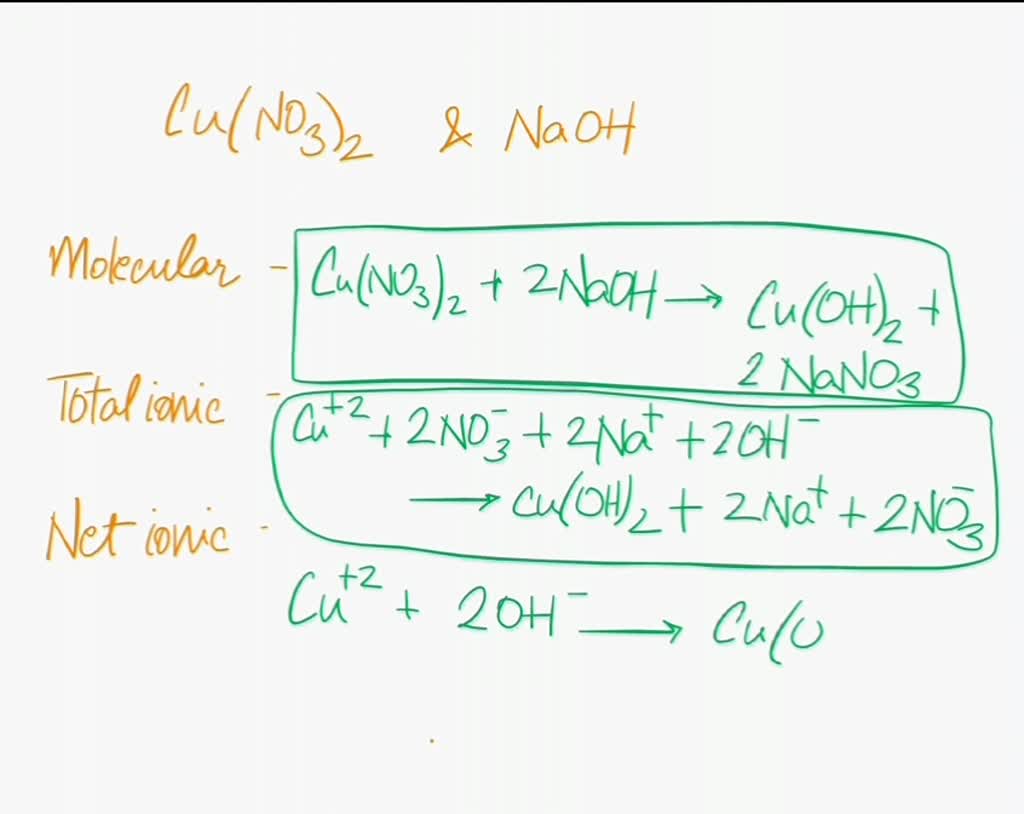 Cu(NO₃)₂ & NaOH
Molecular - Cu(NO₃)₂ + 2NaOH → Cu(OH)₂ +
2 NaNO₃
Total ionic - Cu⁺² + 2NO₃⁻ + 2Na⁺ + 2OH⁻
→ Cu(OH)₂ + 2Na⁺ + 2NO₃⁻
Net ionic -
Cu⁺² + 2OH⁻ → Cu(O